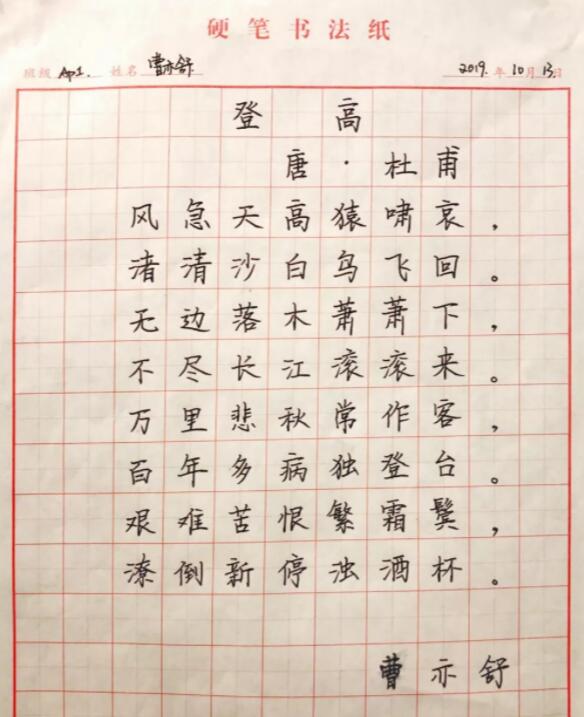 硬笔书法纸
班级 Ap1. 姓名 曹亦舒 2019.年10月13日
登高
唐·杜甫
风急天高猿啸哀，
渚清沙白鸟飞回。
无边落木萧萧下，
不尽长江滚滚来。
万里悲秋常作客，
百年多病独登台。
艰难苦恨繁霜鬓，
潦倒新停浊酒杯。
曹亦舒